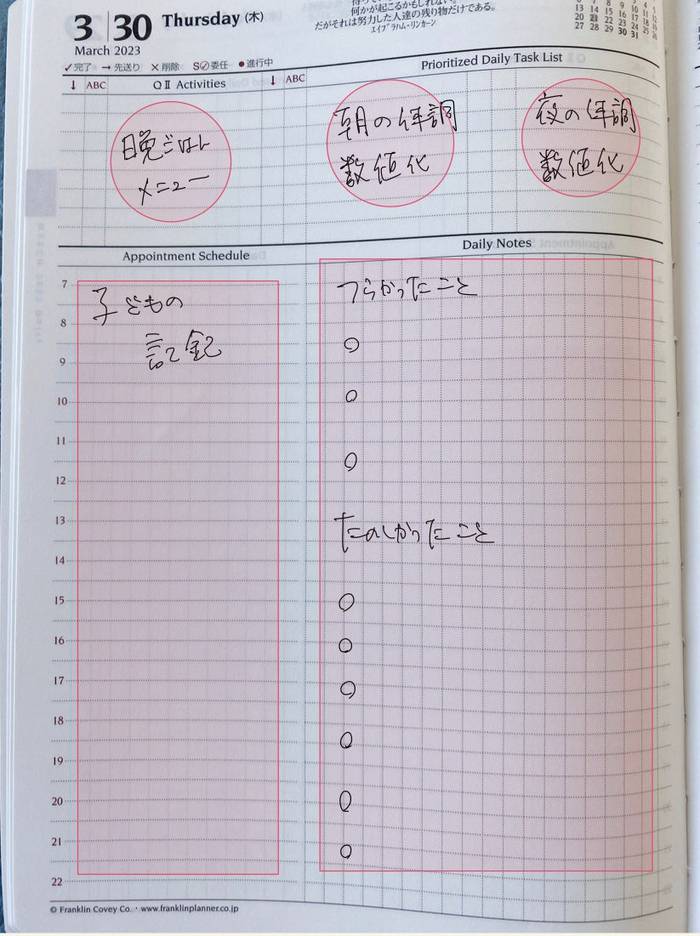 何かが起こるかもしれない。
だがそれは努力した人達の残り物だけである。
エイブラハム・リンカーン
3 30 Thursday (木)
March 2023
7 8 9 10 11
13 14 15 16 17 18
20 21 22 23 24 25
27 28 29 30 31
✓完了 → 先送り ×削除 S⊘委任 ●進行中
↓ ABC Q II Activities ↓ ABC Prioritized Daily Task List
晩ごはん
メニュー
朝の体調
数値化
夜の体調
数値化
Appointment Schedule
Daily Notes
7
8
9
10
11
12
13
14
15
16
17
18
19
20
21
22
子どもの
記録
つらかったこと
○
○
○
たのしかったこと
○
○
○
○
○
○
© Franklin Covey Co. · www.franklinplanner.co.jp